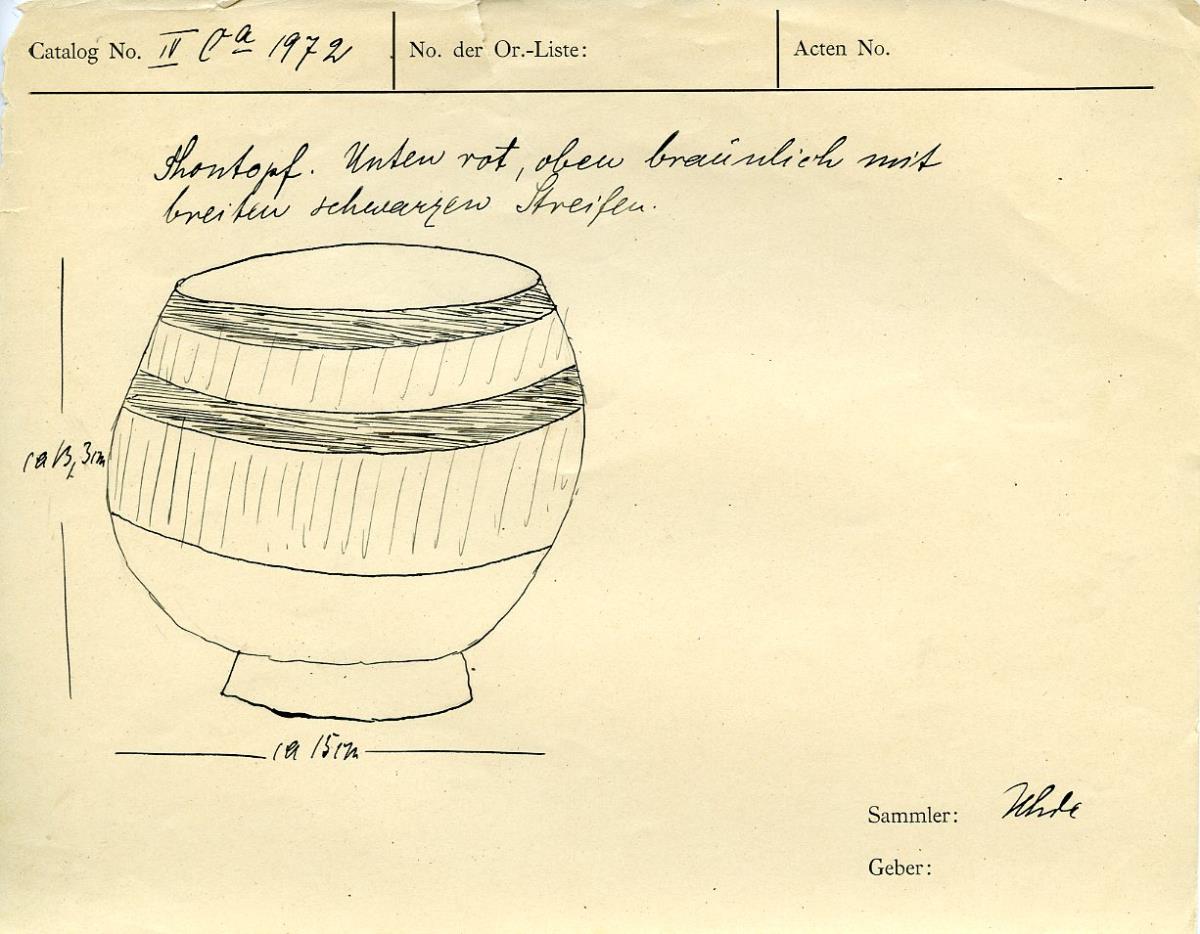 Catalog No. IV Ca 1972
No. der Or.-Liste:
Acten No.
Thontopf. Unten rot, oben bräunlich mit
breiten schwarzen Streifen.
ca 13,3cm
ca 15cm
Sammler: Uhde
Geber: